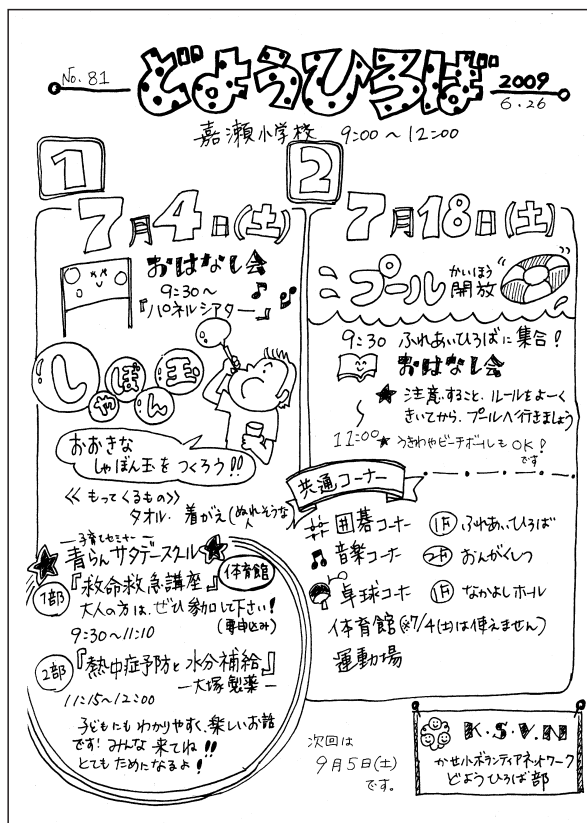 No. 81
どようひろば
2009
6.26
嘉瀬小学校 9:00～12:00
1
7月4日(土)
おはなし会
9:30～
『パネルシアター』
しゃぼん玉
おおきな
しゃぼん玉をつくろう!!
≪もってくるもの≫
タオル・着がえ(ぬれそうな人
子育てセミナー
★青らんサタデースクール★
1部 『救命救急講座』 体育館
大人の方は、ぜひ参加して下さい!
(要申込み)
9:30～11:10
2部 『熱中症予防と水分補給』
ー大塚製薬ー
11:15～12:00
子どもにもわかりやすく、楽しいお話
です! みんな来てね!!
とてもためになるよ!
2
7月18日(土)
プール開放
かいほう
9:30 ふれあいひろばに集合!
おはなし会
★ 注意すること、ルールをよーく
きいてから、プールへ行きましょう
～
11:00 ★ うきわやビーチボールもOK!
です
共通コーナー
囲碁コーナー 1F ふれあいひろば
音楽コーナー 2F おんがくしつ
卓球コーナー 1F なかよしホール
体育館(※7/4(土)は使えません)
運動場
次回は
9月5日(土)
です。
K・S・V・N
かせ小ボランティアネットワーク
どようひろば部